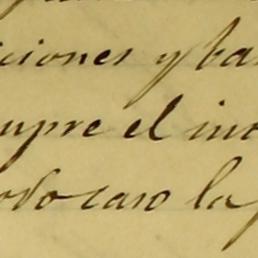 ciones y ba
mpre el inc
odo caso la